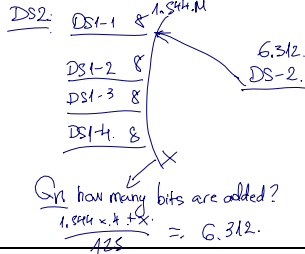 DS2:
DS1-1 8 1.544.M
6.312.
DS-2.
DS1-2 8
DS1-3 8
DS1-4. 8
x
Qn how many bits are added?
1.544 x.4 + x.
125
= 6.312.